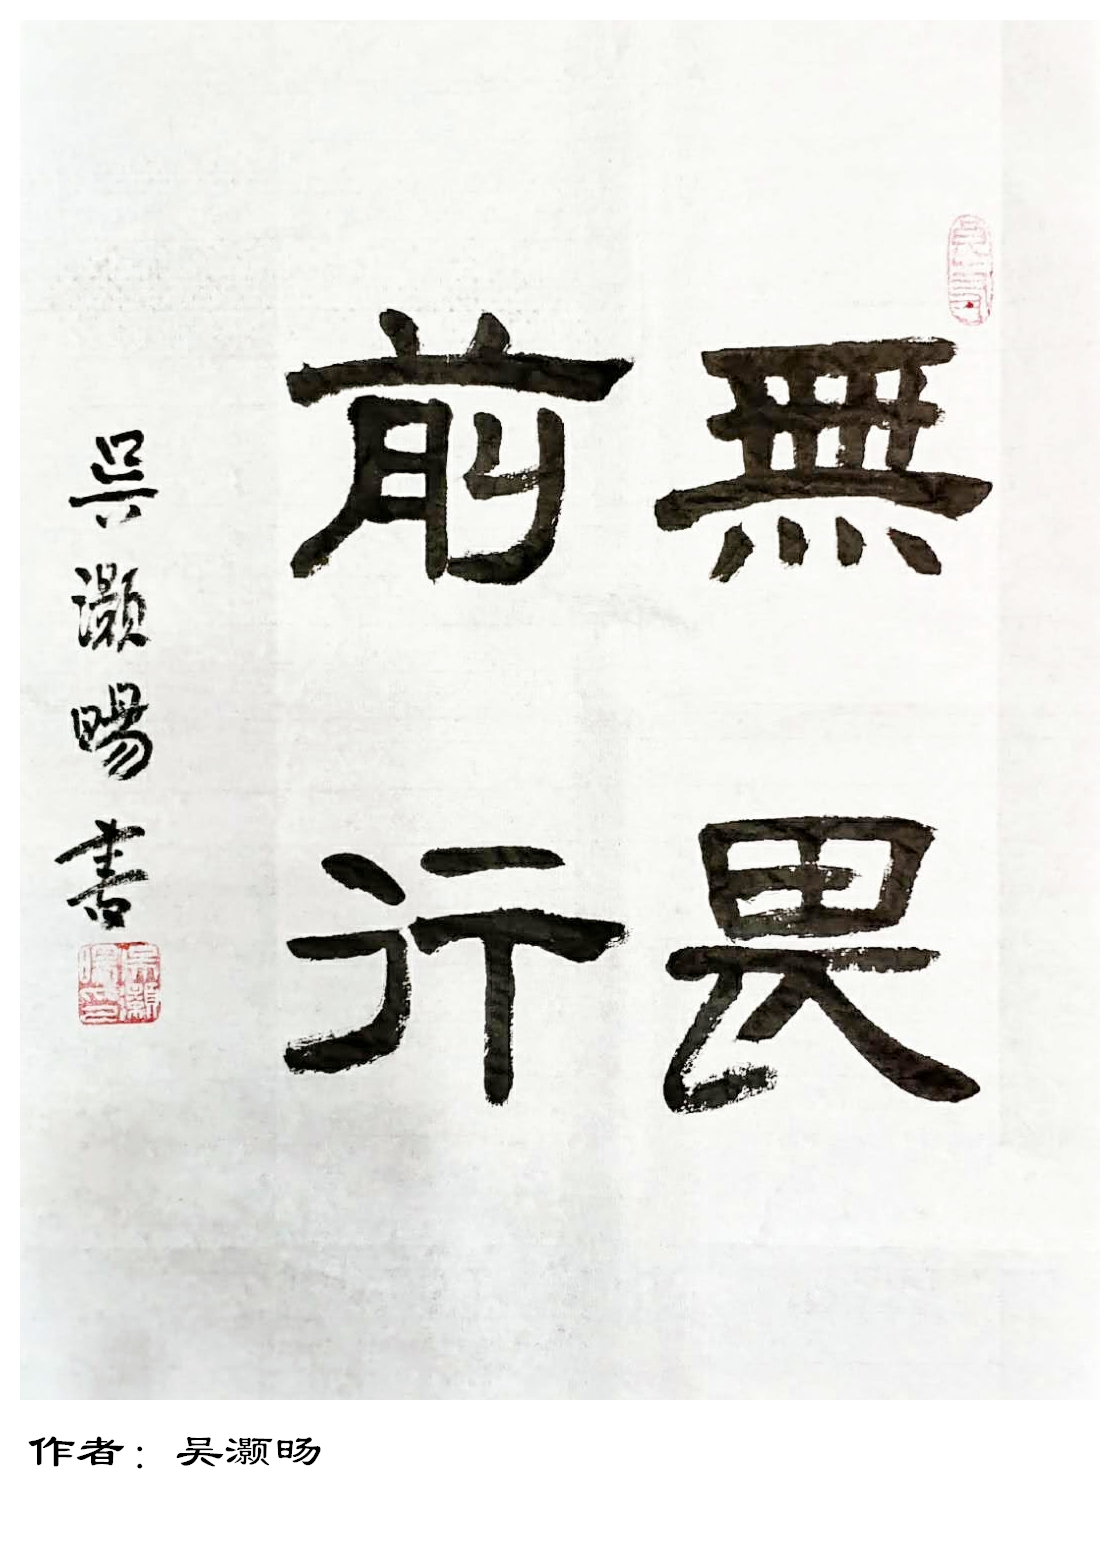 無畏
前行
吳灝暘書
作者：吴灏旸